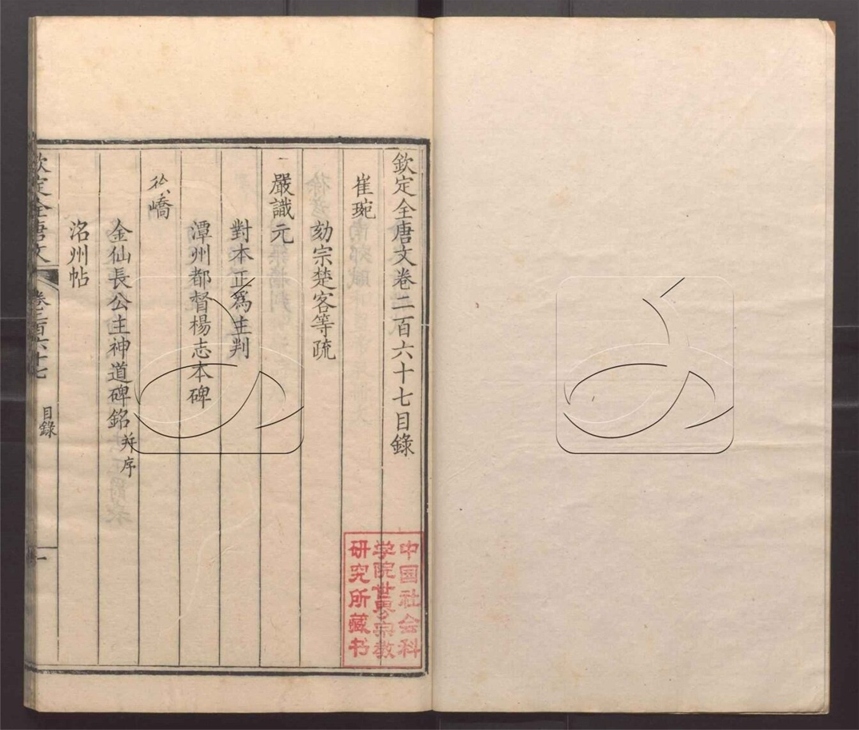 欽定全唐文卷二百六十七目錄
崔琬
劾宗楚客等疏
嚴識元
對本正爲主判
潭州都督楊志本碑
嶠
金仙長公主神道碑銘并序
洺州帖
欽定全唐文 卷二百六十七 目錄 一
中国社会科
学院世界宗教
研究所藏书